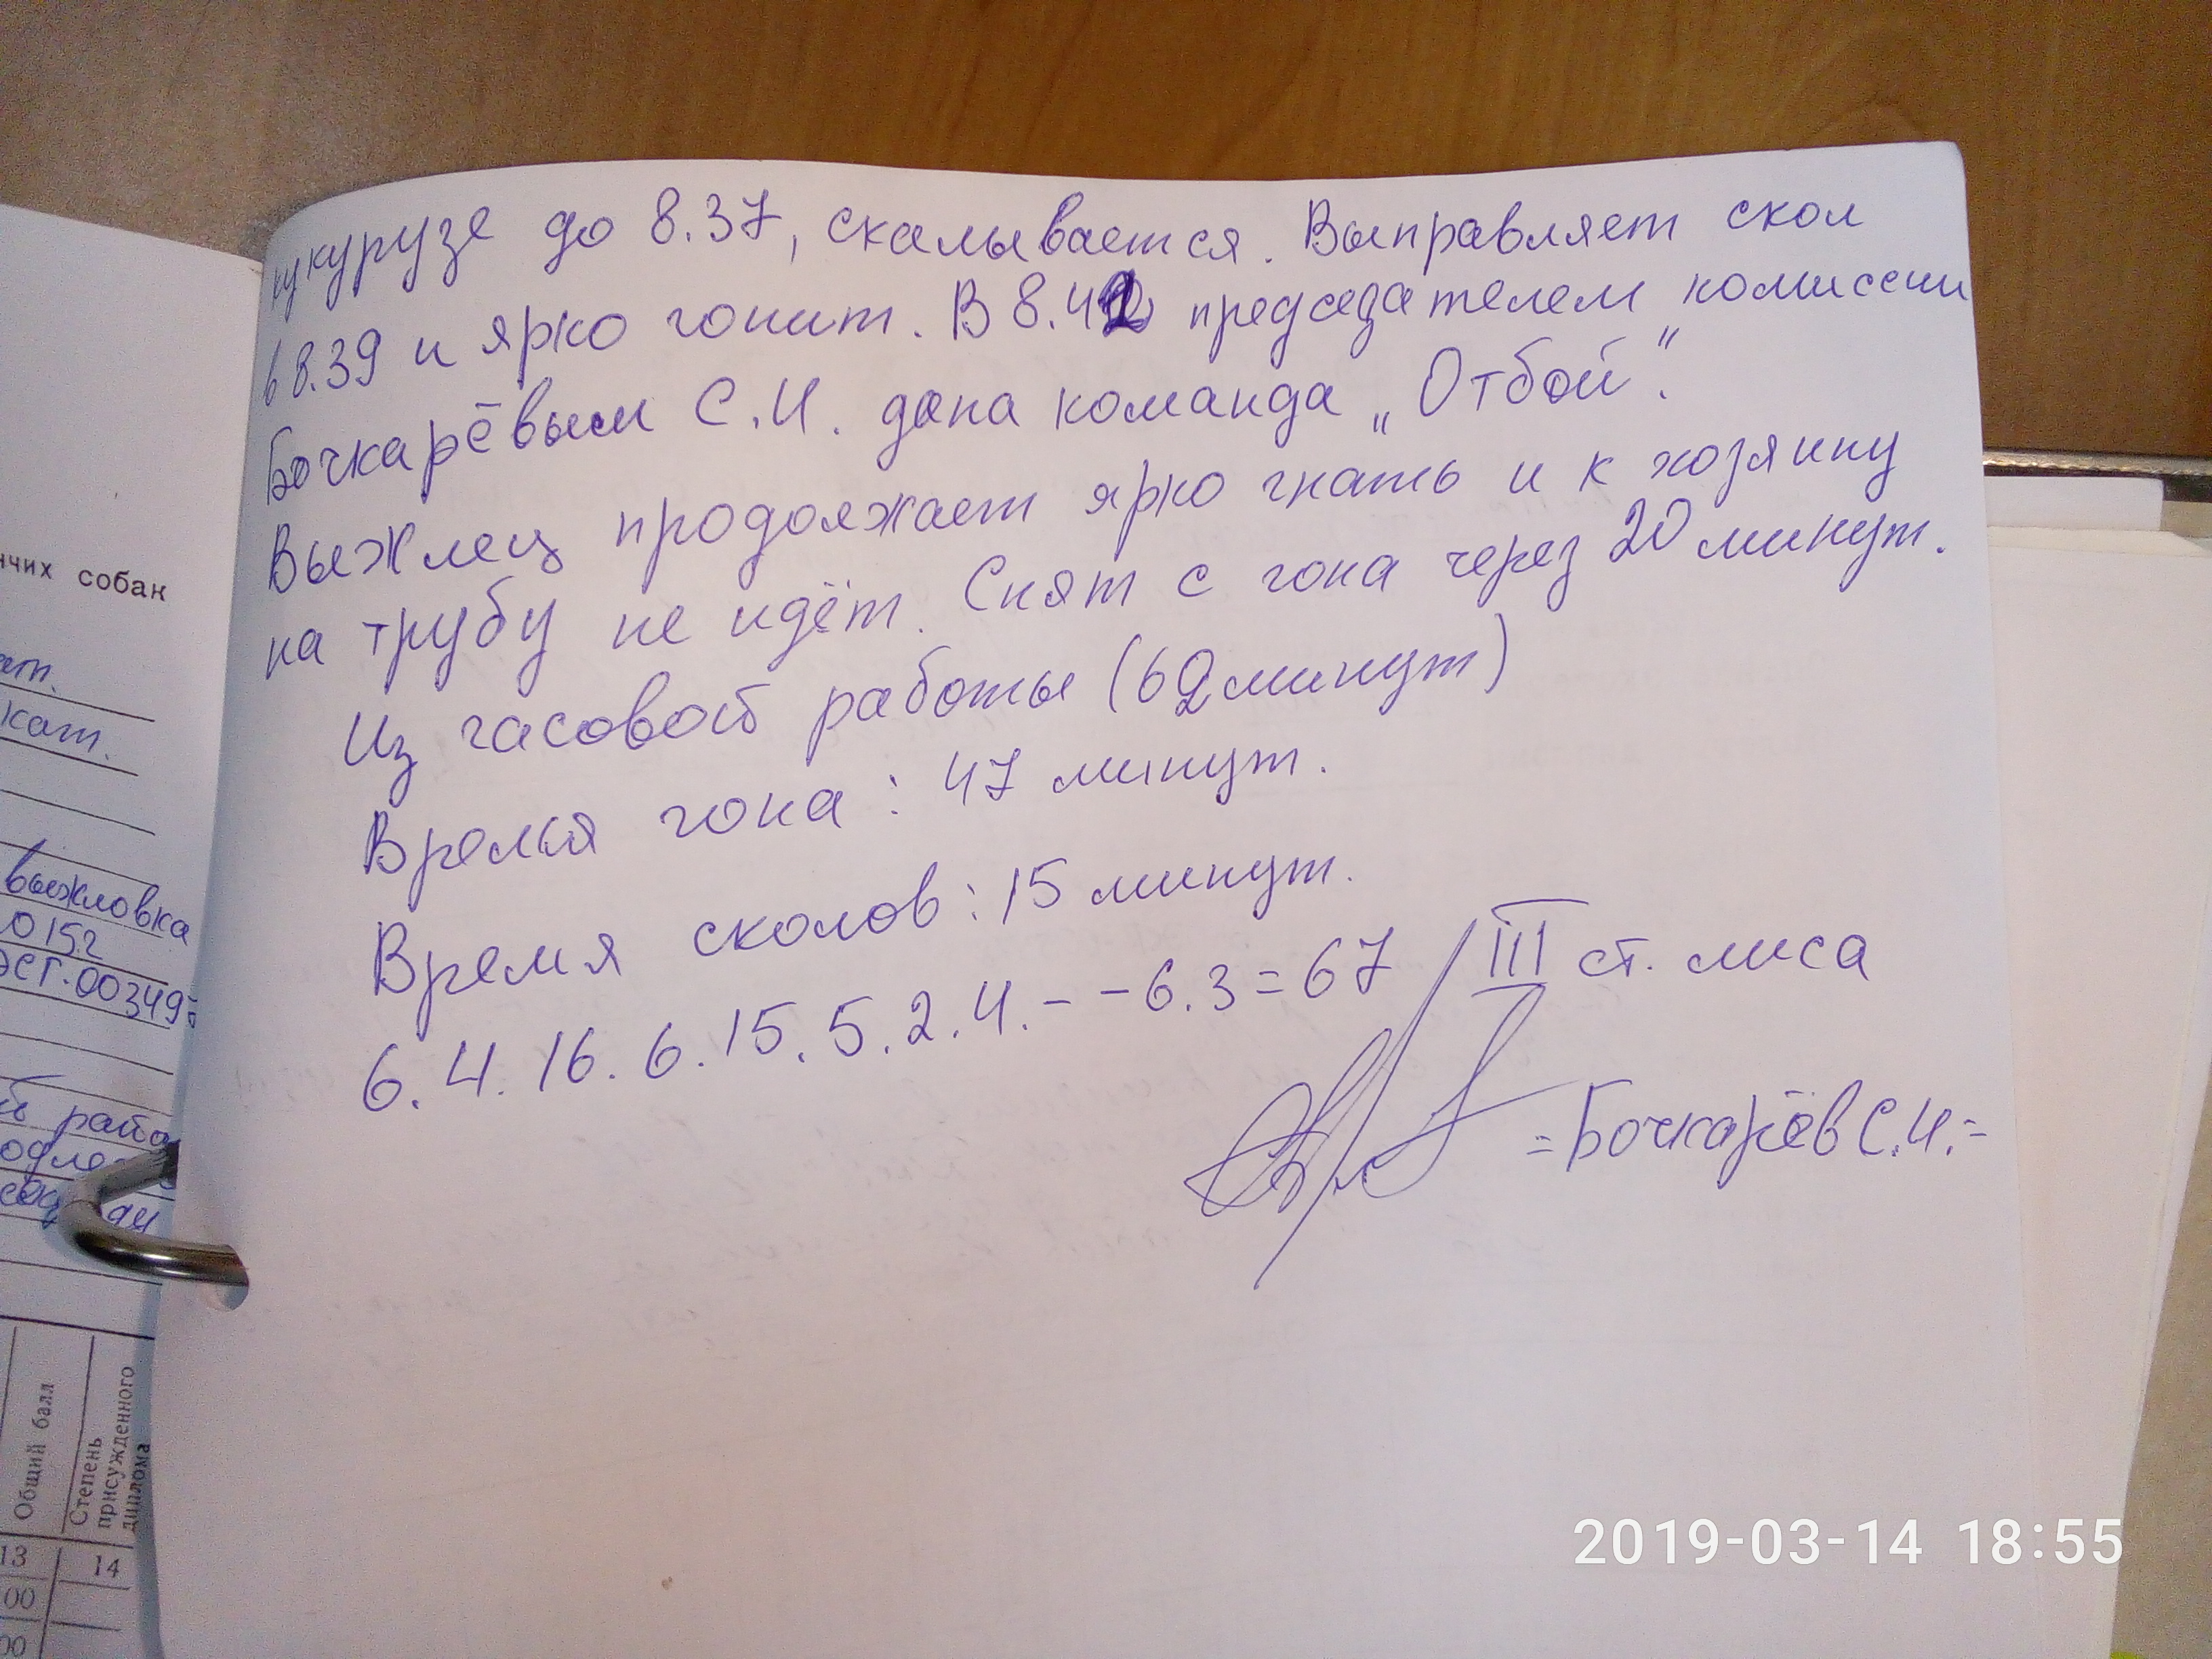 кукурузе до 8.37, скалывается. Выправляет скол
в 8.39 и ярко гонит. В 8.42 председателем комиссии
Бочкарёвым С.И. дана команда „Отбой".
Выжлец продолжает ярко гнать и к хозяину
на трубу не идёт. Снят с гона через 20 минут.
Из часовой работы (62 минут)
Время гона: 47 минут.
Время сколов: 15 минут.
6. 4. 16. 6. 15. 5. 2. 4. - - 6. 3 = 67 / III ст. лиса
= Бочкарёв С.И. =
нчих собак
кат.
выжловка
0152
00349
Общий балл
Степень
присужденного
диплома
13 14
00
00
2019-03-14 18:55